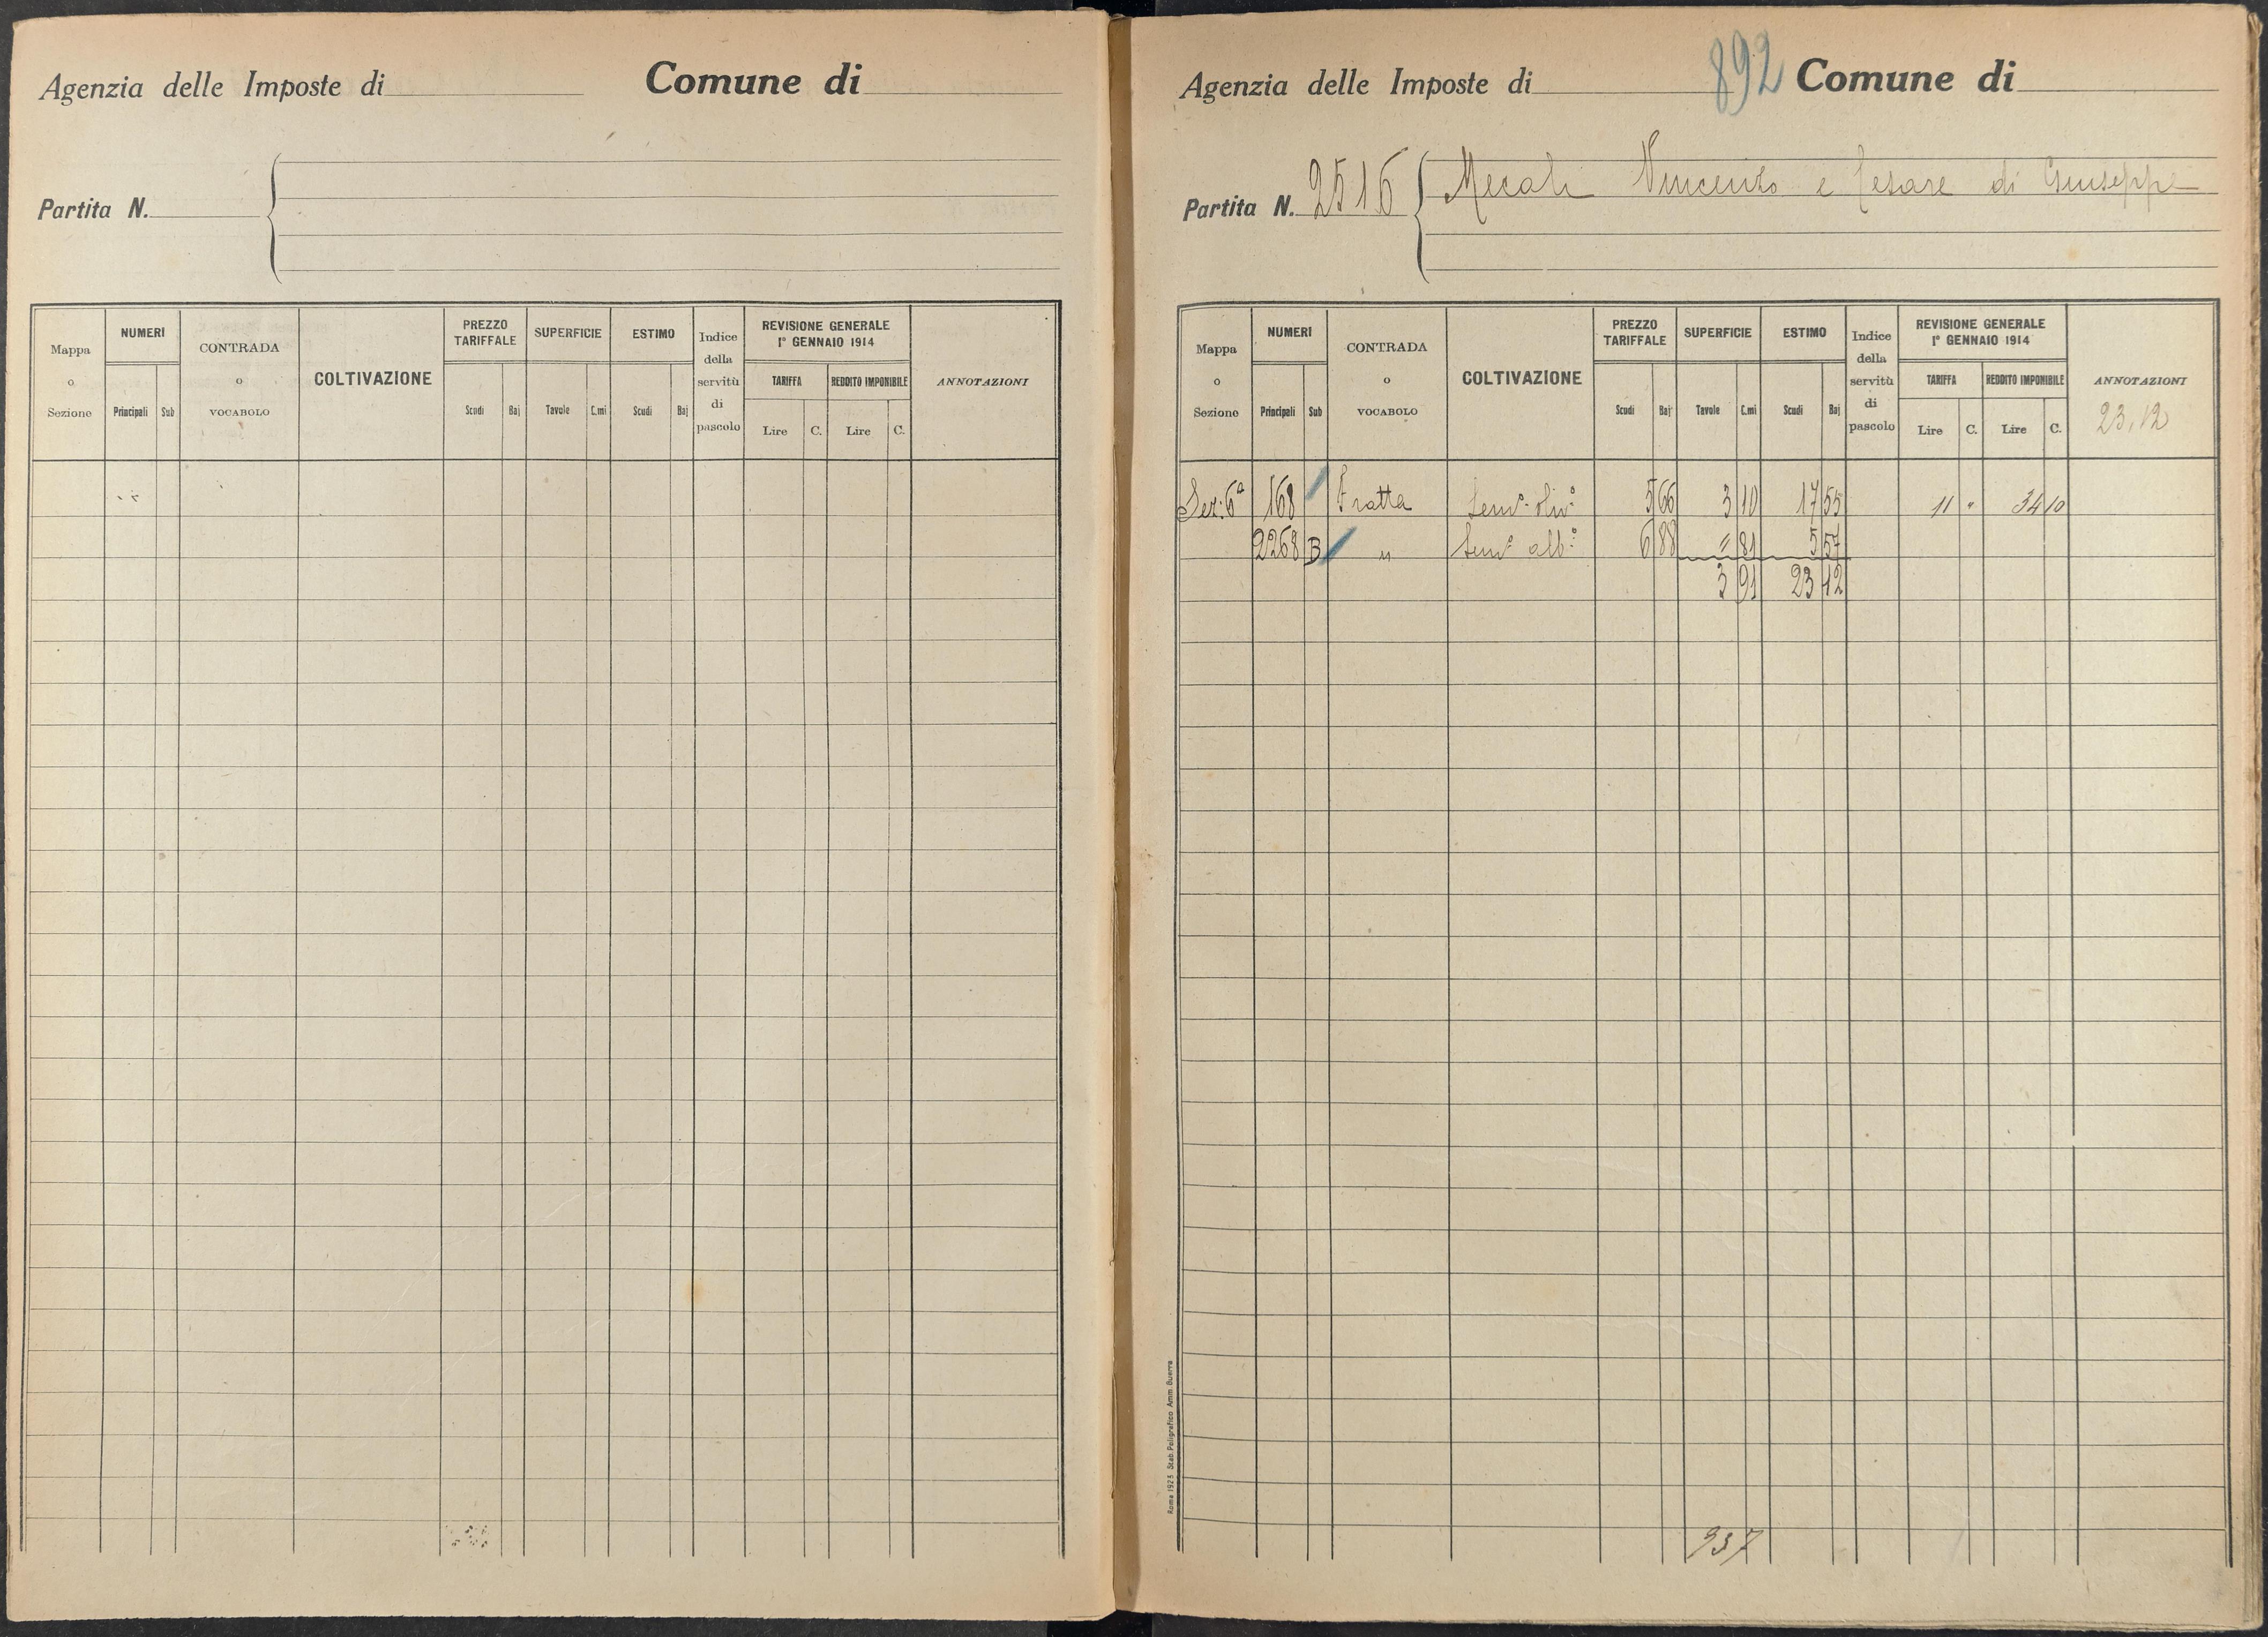 Agenzia delle Imposte di Comune di
Partita N.
Mappa o Sezione NUMERI Principali Sub CONTRADA o VOCABOLO COLTIVAZIONE PREZZO TARIFFALE Scudi Baj SUPERFICIE Tavole C.mi ESTIMO Scudi Baj Indice della servitù di pascolo REVISIONE GENERALE 1° GENNAIO 1914 TARIFFA Lire C. REDDITO IMPONIBILE Lire C. ANNOTAZIONI
892
Agenzia delle Imposte di Comune di
Partita N. 2516 Mecali Vincenzo e Cesare di Giuseppe
Mappa o Sezione NUMERI Principali Sub CONTRADA o VOCABOLO COLTIVAZIONE PREZZO TARIFFALE Scudi Baj SUPERFICIE Tavole C.mi ESTIMO Scudi Baj Indice della servitù di pascolo REVISIONE GENERALE 1° GENNAIO 1914 TARIFFA Lire C. REDDITO IMPONIBILE Lire C. ANNOTAZIONI
23,12
Sez: 6ª 168 Fratta Semo. Olivo. 5 66 3 10 17 55 11 " 34 10
2268 B " Semo. albo. 6 88 " 81 5 57
3 91 23 12
937
Roma 1923 Stab. Poligrafico Amm. Guerra